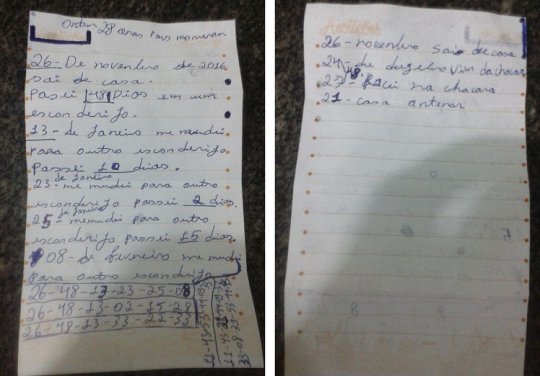 Ontem 28 anos Pars moreram
26-De novembro de 2016
sai de casa.
Passei 48 Dias em um
esconderijo.
13-de Janeiro me mudei
para outro esconderijo
Passei 10 dias.
de Janeiro
23-me mudei para outro
esconderijo passei 2 dias
de Janeiro
25-me mudei para outro
esconderijo passei 15 dias
08-de fevereiro me mudei
para outro esconderijo
26-48-13-23-25-08
26-48-13-02-15-28
26-48-13-33-22-33
Anotações
26-novembro sai de casa
24-de dezembro vim da chacara
27 fiquei na chacara
21-casa anterior